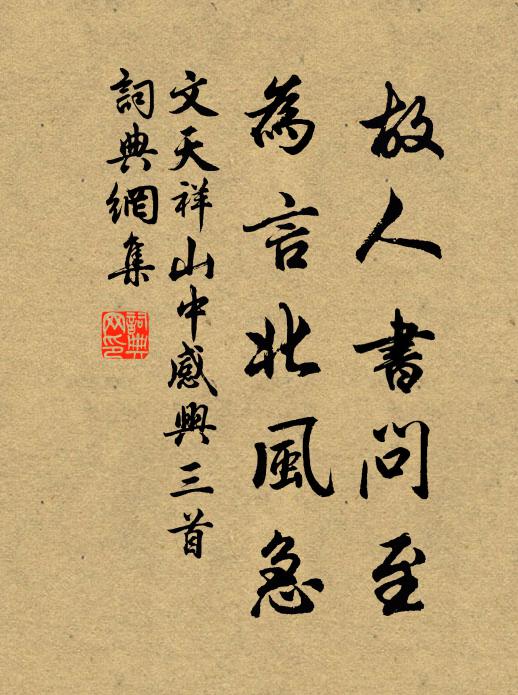 故人書問至
為言北風急
文天祥山中感興三首
詞典網集
詞典网印